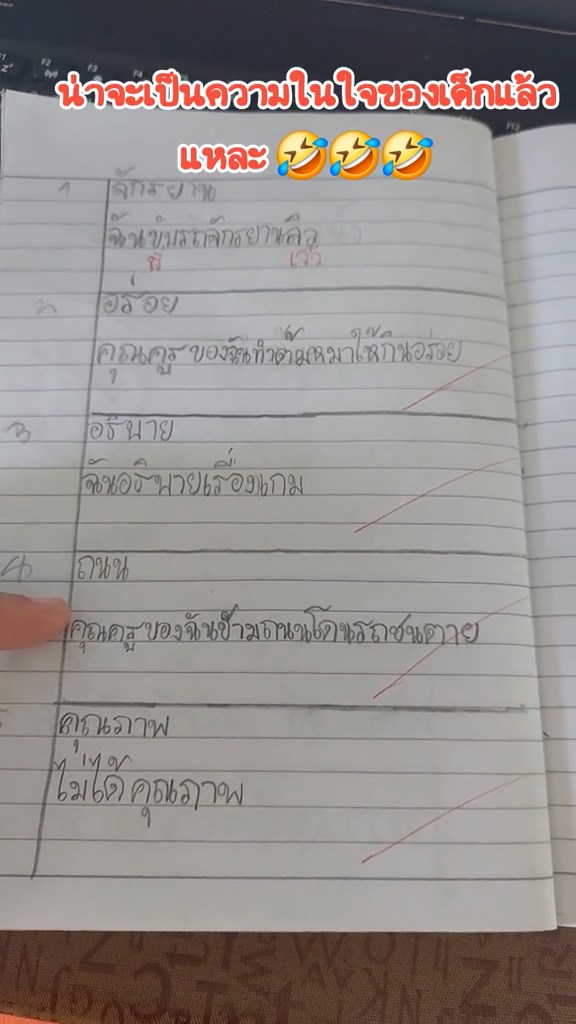 น่าจะเป็นความในใจของเด็กแล้ว
แหละ 🤣🤣🤣
จักรยาน
ฉันขับรถจักรยานลิว
ขี่ เร็ว
2
อร่อย
คุณครูของฉันทำต้มหมาให้กินอร่อย
3
อธิบาย
ฉันอธิบายเรื่องเกม
4
ถนน
คุณครูของฉันข้ามถนนโดนรถชนตาย
คุณภาพ
ไม่ได้คุณภาพ